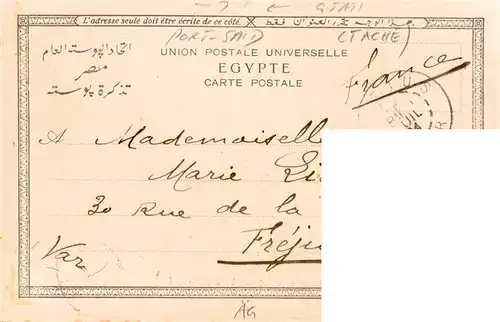 GTMI
L'adresse seule doit être écrite de ce côté.
PORT-SAID (TACHE)
UNION POSTALE UNIVERSELLE
اتحاد البوستة العام
EGYPTE
مصر
CARTE POSTALE
تذكرة بوستة
France
A Mademoiselle
Marie
30 Rue de la
Fréju
(Var)
AG